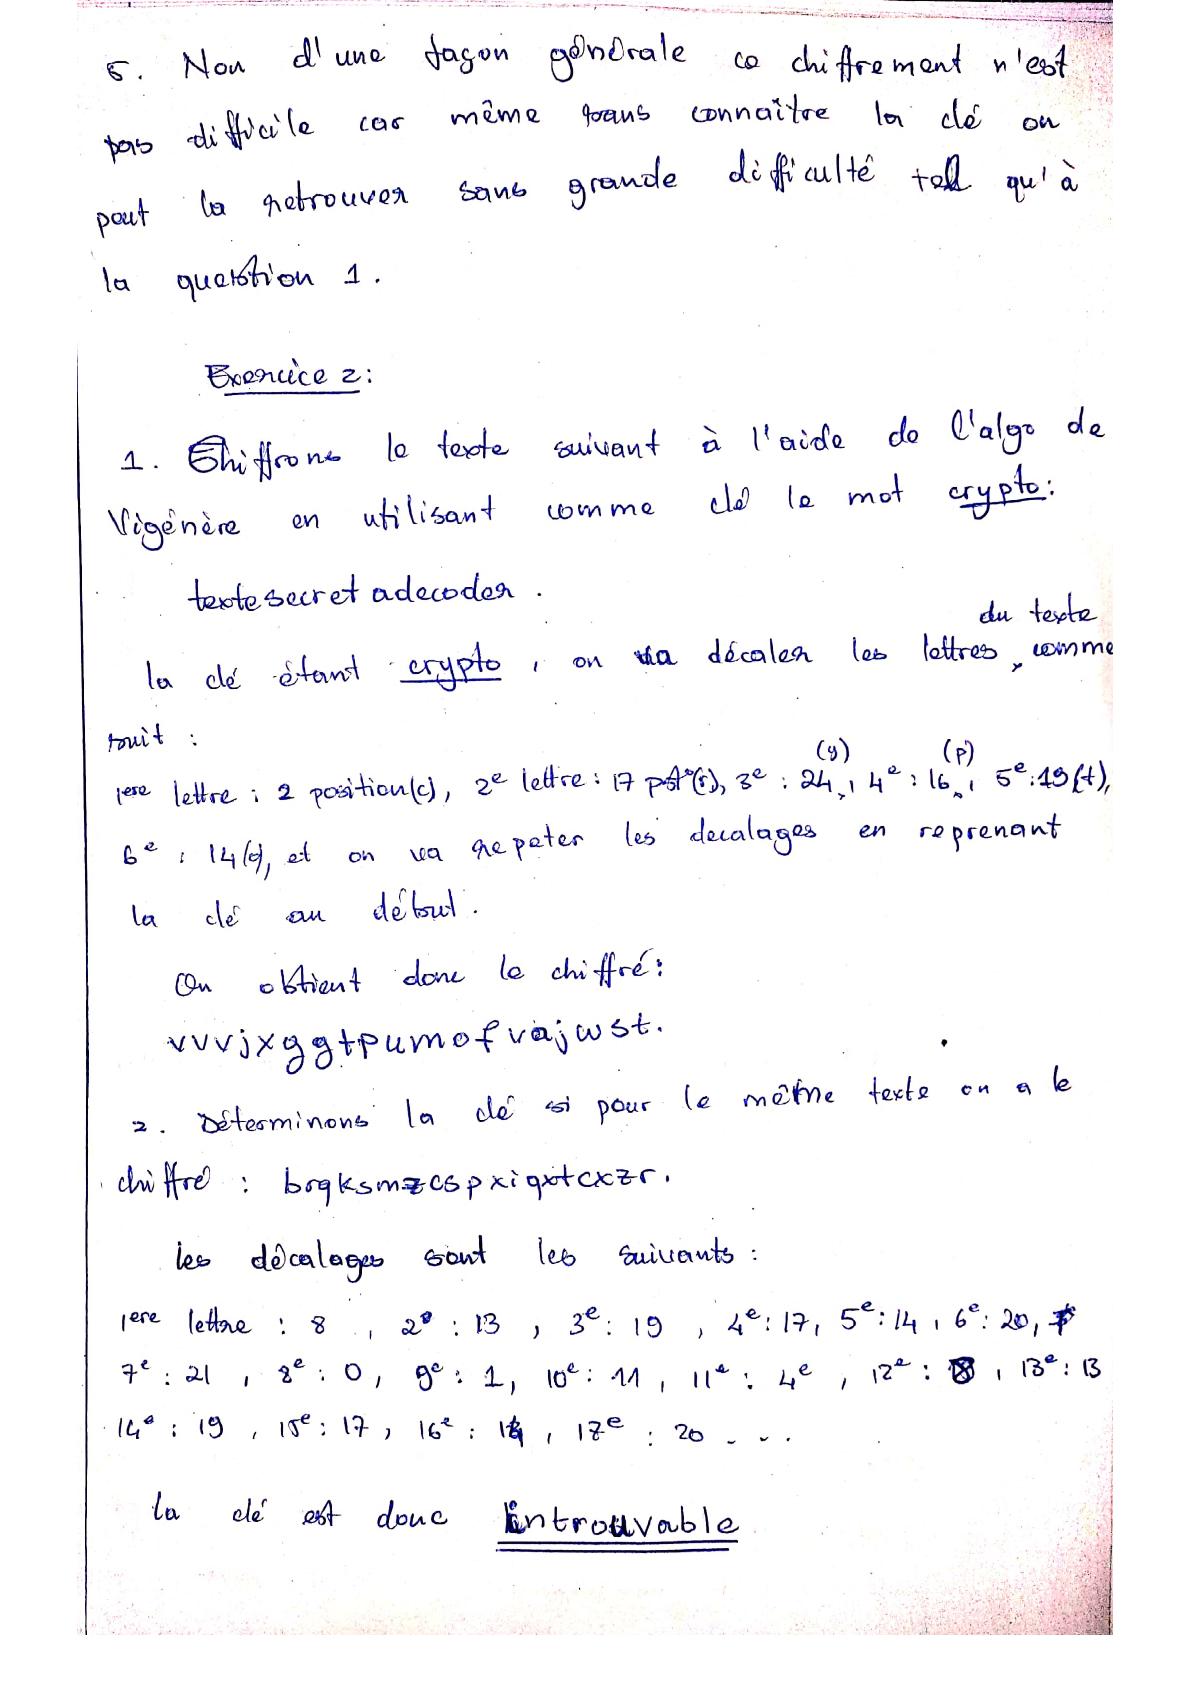 5. Non d'une façon générale ce chiffrement n'est
pas difficile car même sans connaître la clé on
peut la retrouver sans grande difficulté tel qu'à
la question 1.
Exercice 2:
1. Chiffrons le texte suivant à l'aide de l'algo de
Vigénère en utilisant comme clé le mot crypto:
textesecretadecoder.
la clé étant crypto, on va décaler les lettres du texte, comme
suit :
1ere lettre : 2 position(c), 2e lettre : 17 pst°(r), 3e : 24 (y), 4e : 16 (p), 5e : 19(t),
6e : 14(o), et on va repeter les decalages en reprenant
la clé au début.
On obtient donc le chiffré:
vvvjxggtpumofvajwst.
2. Déterminons la clé si pour le même texte on a le
chiffré : brqksmzcspxiqxtcxzr.
les décalages sont les suivants :
1ere lettre : 8, 2e : 13, 3e : 19, 4e : 17, 5e : 14, 6e : 20,
7e : 21, 8e : 0, 9e : 1, 10e : 11, 11e : 4e, 12e : 8, 13e : 13
14e : 19, 15e : 17, 16e : 14, 17e : 20 - - .
la clé est donc introuvable